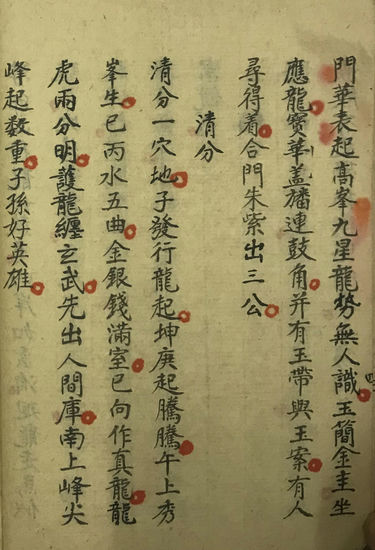 門華表起高峯九星龍勢無人識玉簡金主坐
應龍寳華盖旛連鼓角并有玉帶與玉案有人
尋得着合門朱紫出三公
清分
清分一穴地子發行龍起坤庚起騰騰午上秀
峯生巳丙水五曲金銀錢滿室巳向作真龍龍
虎兩分明護龍纏玄武先出人間庫南上峰尖
峰起数重子孫好英雄